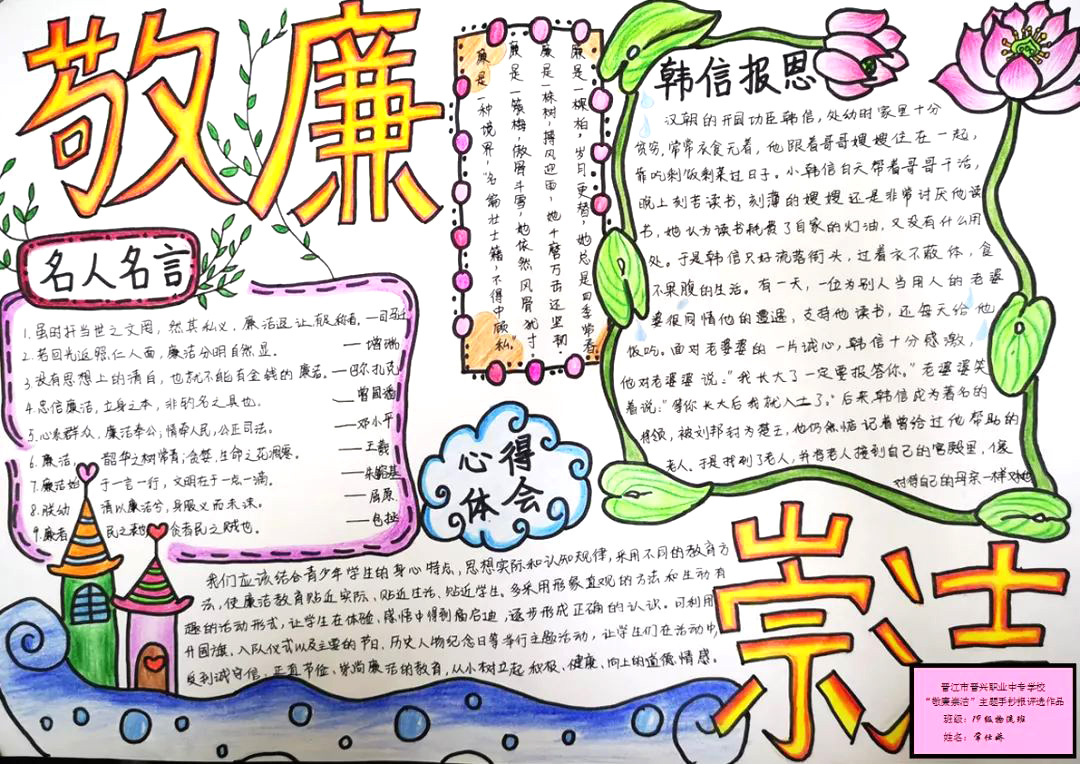 敬廉
崇洁
名人名言
1.虽时扞当世之文罔，然其私义，廉洁退让，有足称者。—司马迁
2.若回光返照仁人面，廉洁分明自然显。 —增瑞
3.没有思想上的清白，也就不能有金钱的廉洁。—巴尔扎克
4.忠信廉洁，立身之本，非钓名之具也。 —曾国藩
5.心系群众，廉洁奉公；情牵人民，公正司法。 —邓小平
6.廉洁 韶华之树常青；贪婪，生命之花凋零。 —王羲
7.廉洁始于一言一行，文明在于一点一滴。 —朱熔基
8.朕幼 清以廉洁兮，身服义而未沫。 —屈原
9.廉者 民之表也 贪者民之贼也。 —包拯
廉是一棵柏，岁月更替，她总是四季常春
廉是一株树，搏风迎雨，她千磨万击还坚韧
廉是一簇梅，傲骨斗雪，她依然风骨犹寸
廉是一种境界，“名编壮士籍，不得中顾私”
韩信报恩
汉朝的开国功臣韩信，处幼时家里十分
贫穷，常常衣食无着，他跟着哥哥嫂嫂住在一起，
靠吃剩饭剩菜过日子。小韩信白天帮着哥哥干活，
晚上刻苦读书，刻薄的嫂嫂还是非常讨厌他读
书，她认为读书耗费了自家的灯油，又没有什么用
处。于是韩信只好流落街头，过着衣不蔽体，食
不果腹的生活。有一天，一位为别人当用人的老婆
婆很同情他的遭遇，支持他读书，还每天给他
饭吃。面对老婆婆的一片诚心，韩信十分感激，
他对老婆婆说：“我长大了一定要报答你。”老婆婆笑
着说：“等你长大后我就入土了。”后来韩信成为著名的
将领，被刘邦封为楚王，他仍然惦记着曾给过他帮助的
老人。于是找到了老人，并将老人接到自己的宫殿里，像
对待自己的母亲一样对她
心得
体会
我们应该结合青少年学生的身心特点，思想实际和认知规律，采用不同的教育方
法，使廉洁教育贴近实际、贴近生活、贴近学生。多采用形象直观的方法和生动有
趣的活动形式，让学生在体验、感悟中得到启迪，逐步形成正确的认识。可利用
升国旗、入队仪式以及主要的节日、历史人物纪念日等举行主题活动，让学生们在活动中，
受到诚守信、正直节俭、崇尚廉洁的教育，从小树立起积极、健康、向上的道德情感。
晋江市晋兴职业中专学校
“敬廉崇洁”主题手抄报评选作品
班级：19级物流班
姓名：